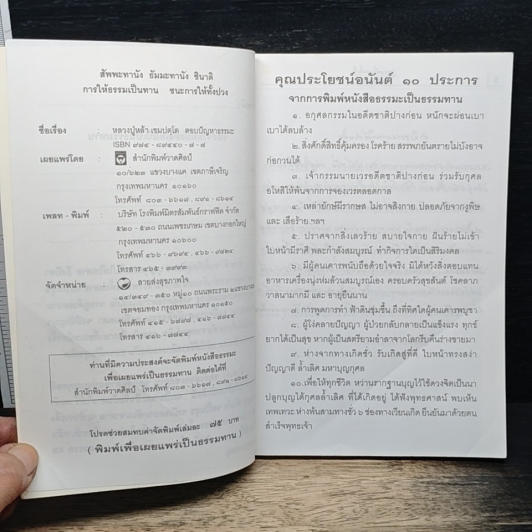 สัพพะทานัง ธัมมะทานัง ชินาติ
การให้ธรรมเป็นทาน ชนะการให้ทั้งปวง
ชื่อเรื่อง หลวงปู่หล้า เขมปตฺโต ตอบปัญหาธรรมะ
ISBN ๙๗๔-๘๙๔๔๐-๗-๗
เผยแพร่โดย สำนักพิมพ์วาดศิลป์
๑๐/๖๒๓ แขวงบางแค เขตภาษีเจริญ
กรุงเทพมหานคร ๑๐๑๖๐
โทรศัพท์
เพลท - พิมพ์ : บริษัท โรงพิมพ์มิตรสัมพันธ์กราฟฟิค จำกัด
๕๒๐-๕๓๐ ถนนเพชรเกษม เขตบางกอกใหญ่
กรุงเทพมหานคร ๑๐๖๐๐
โทรศัพท์
โทรสาร
จัดจำหน่าย : สายส่งสุขภาพใจ
ถนนพระราม
เขตจอมทอง กรุงเทพมหานคร ๑๐๑๕๐
โทรศัพท์
โทรสาร
ท่านที่มีความประสงค์จะจัดพิมพ์หนังสือธรรมะ
เพื่อเผยแพร่เป็นธรรมทาน ติดต่อได้ที่
สำนักพิมพ์วาดศิลป์ โทรศัพท์
โปรดช่วยสมทบค่าจัดพิมพ์เล่มละ ๗๕ บาท
( พิมพ์เพื่อเผยแพร่เป็นธรรมทาน )
คุณประโยชน์อนันต์ ๑๐ ประการ
จากการพิมพ์หนังสือธรรมะเป็นธรรมทาน
๑. อกุศลกรรมในอดีตชาติปางก่อน หนักจะผ่อนเบา
เบาได้ลบล้าง
๒. สิ่งศักดิ์สิทธิ์คุ้มครอง โรคร้าย สรรพภยันตรายไม่บังอาจ
ก่อกวนได้
๓. เจ้ากรรมนายเวรอดีตชาติปางก่อน ร่วมรับกุศล
อโหสิให้พ้นจากการจองเวรตลอดกาล
๔. เหล่ายักษ์ผีรากษส ไม่อาจสิงกาย ปลอดภัยจากงูพิษ
และ เสือร้าย ฯลฯ
๕. ปราศจากสิ่งเลวร้าย สบายใจกาย ฝันร้ายไม่เข้า
ใบหน้ามีราศี พละกำลังสมบูรณ์ ทำกิจการใดเป็นสิริมงคล
๖. มีผู้คนเคารพนับถือด้วยใจจริง มิได้หวังสิ่งตอบแทน
อาหารเครื่องนุ่งห่มล้วนสมบูรณ์เอง ครอบครัวสุขสันต์ โชคลาภ
วาสนามากมี และ อายุยืนนาน
๗. การพูดการทำ ฟ้าดินชุ่มชื้น ถึงที่ทิศใดผู้คนเคารพบูชา
๘. ผู้โง่คลายปัญญา ผู้ป่วยกลับกลายเป็นแข็งแรง ทุกข์
ยากได้เป็นสุข หากผู้เป็นสตรียามอำลาจากโลกรีบคืนร่างชายมา
๙. ห่างจากทางเกิดชั่ว รับเกิดสู่ที่ดี ใบหน้าทรงสง่า
ปัญญาดี ล้ำเลิศ มหาบุญกุศล
๑๐.เพื่อให้ทุกชีวิต หว่านรากฐานบุญไว้ใช้ดวงจิตเป็นนา
ปลูกบุญได้กุศลล้ำเลิศ ที่ได้เกิดอยู่ ได้ฟังพุทธศาสน์ พบเห็น
เทพเทวะ ห่างพ้นสามทางชั่ว ๖ ช่องทางเวียนเกิด ยืนยันมาด้วยตน
สำเร็จพุทธเจ้า